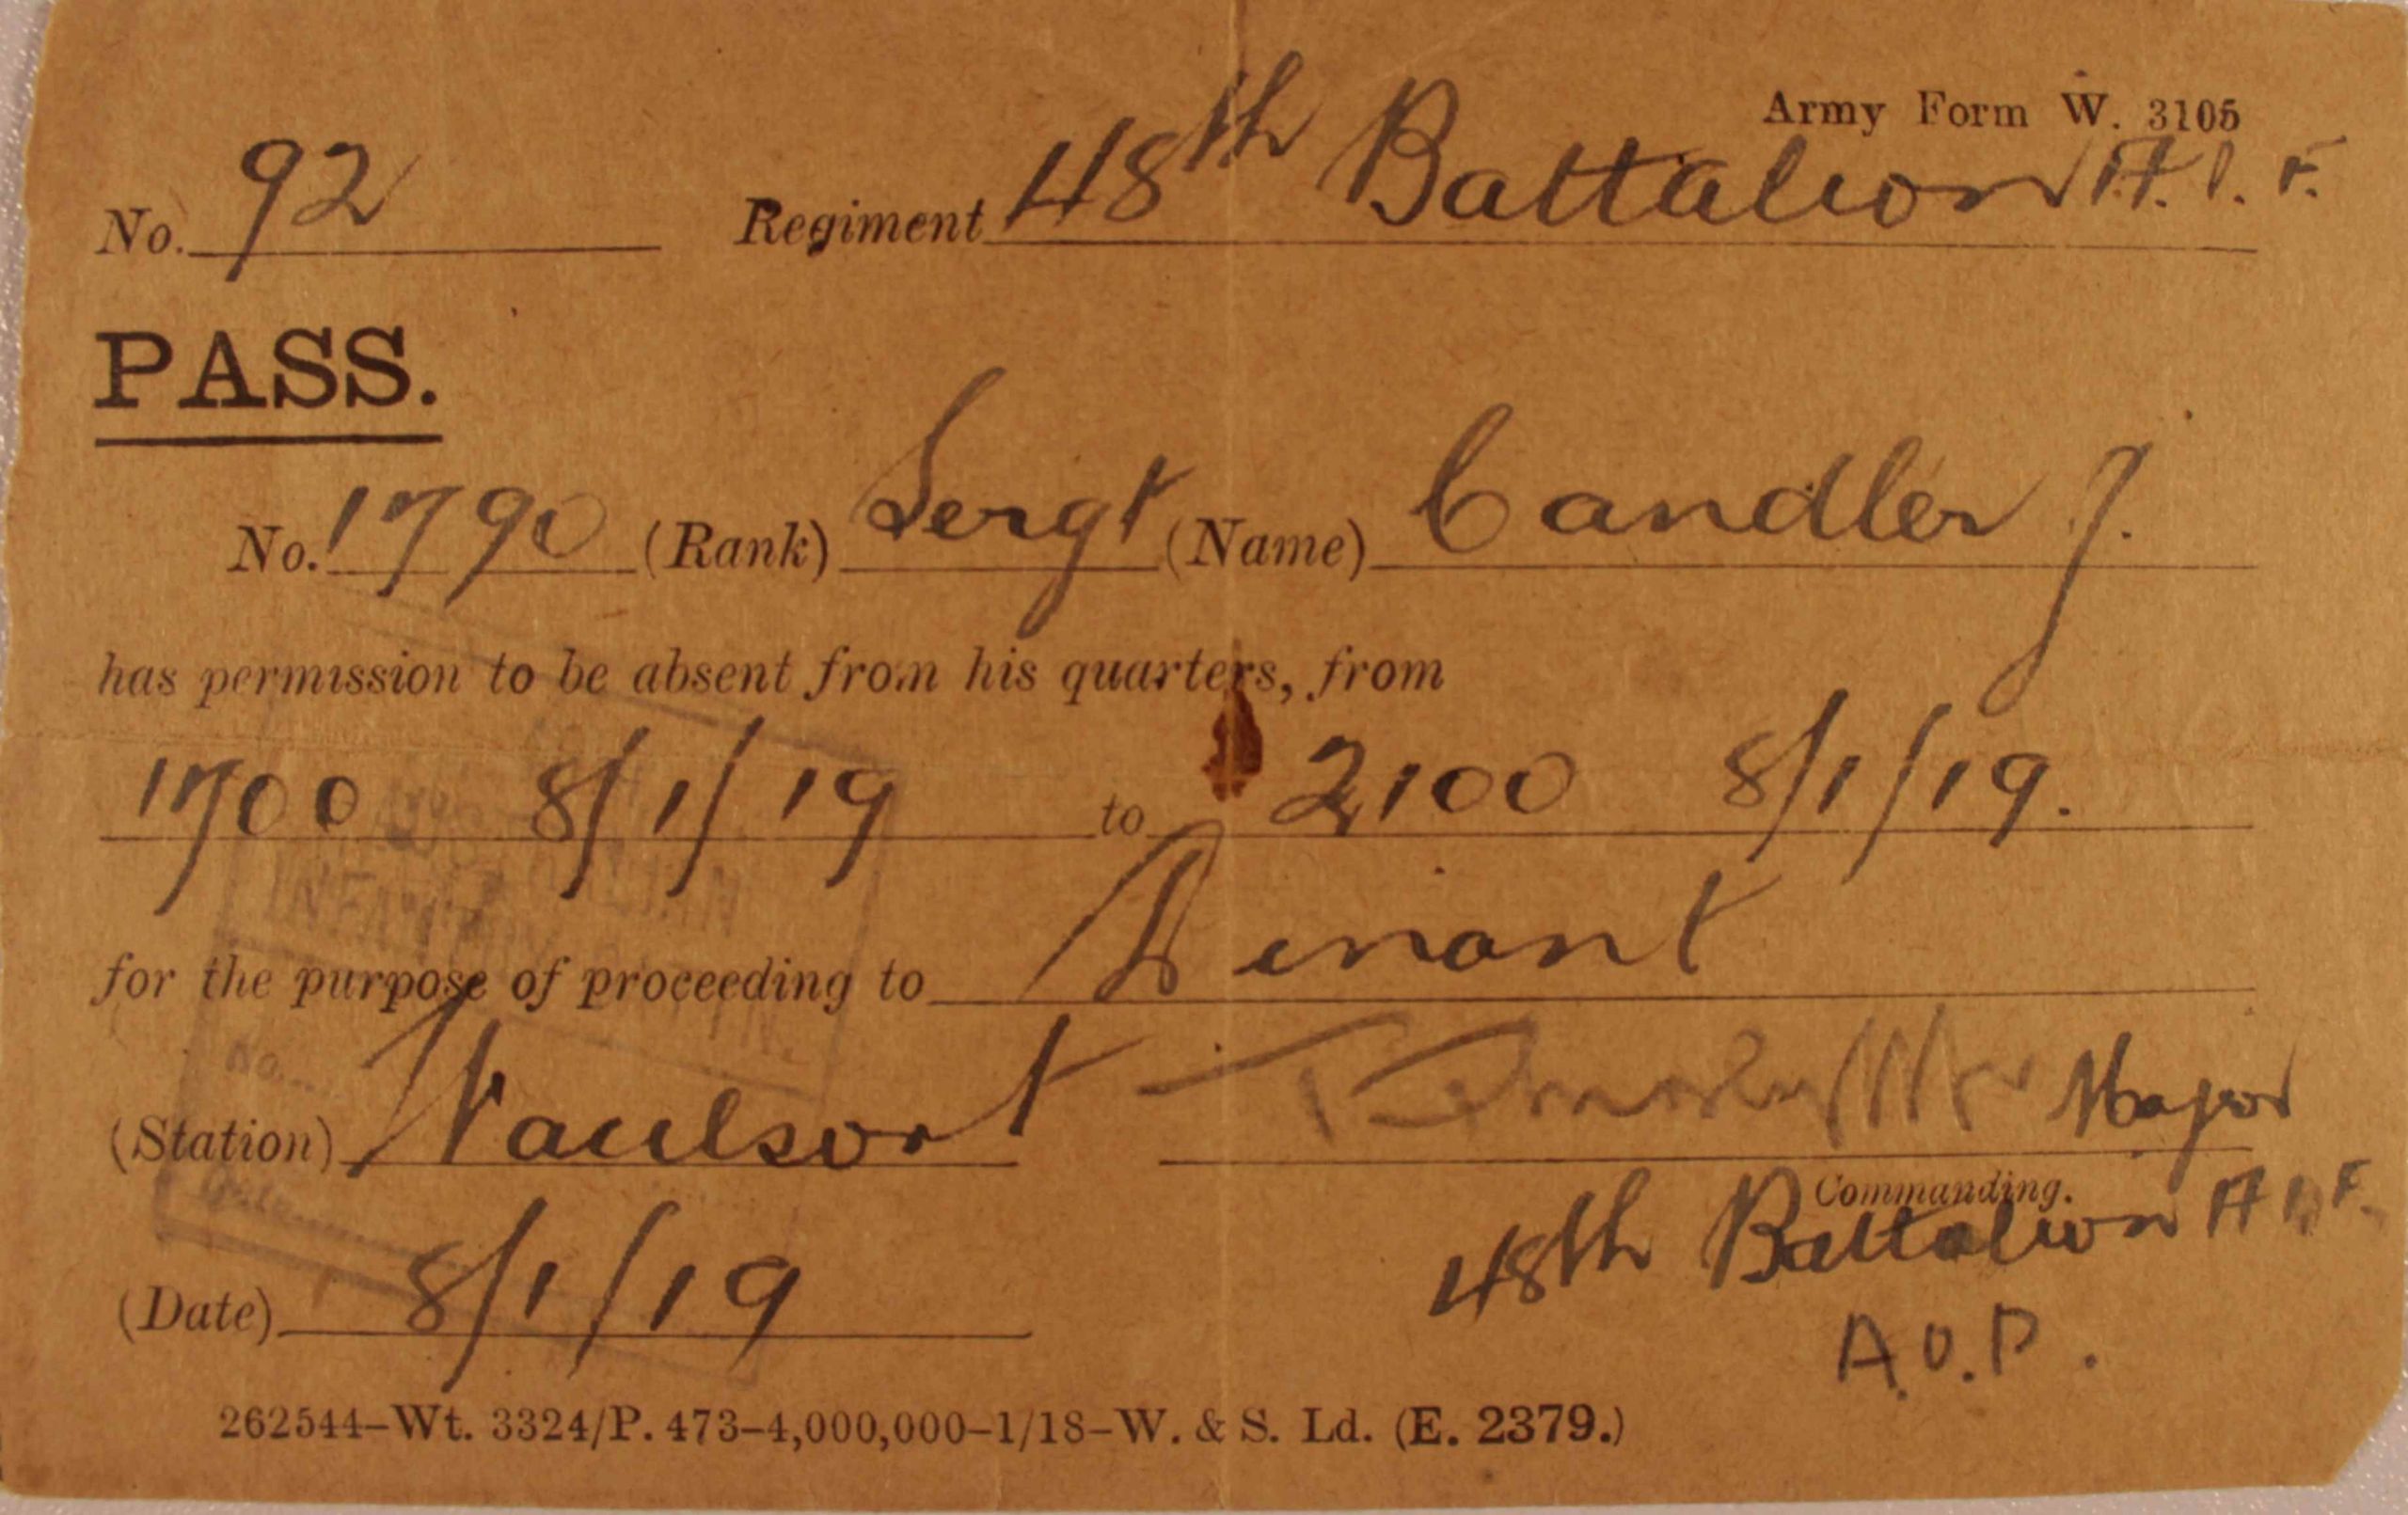 Army Form W. 3105
No. 92 Regiment 48th Battalion A.I.F.
PASS.
No. 1790 (Rank) Sergt (Name) Candler J.
has permission to be absent from his quarters, from
1700 8/1/19 to 2100 8/1/19.
for the purpose of proceeding to Dinant
(Station) Waulsort Major
Commanding.
48th Battalion A.I.F.
(Date) 8/1/19
A.O.P.
262544–Wt. 3324/P. 473–4,000,000–1/18–W. & S. Ld. (E. 2379.)
AUSTRALIAN
INFANTRY
No.
Date